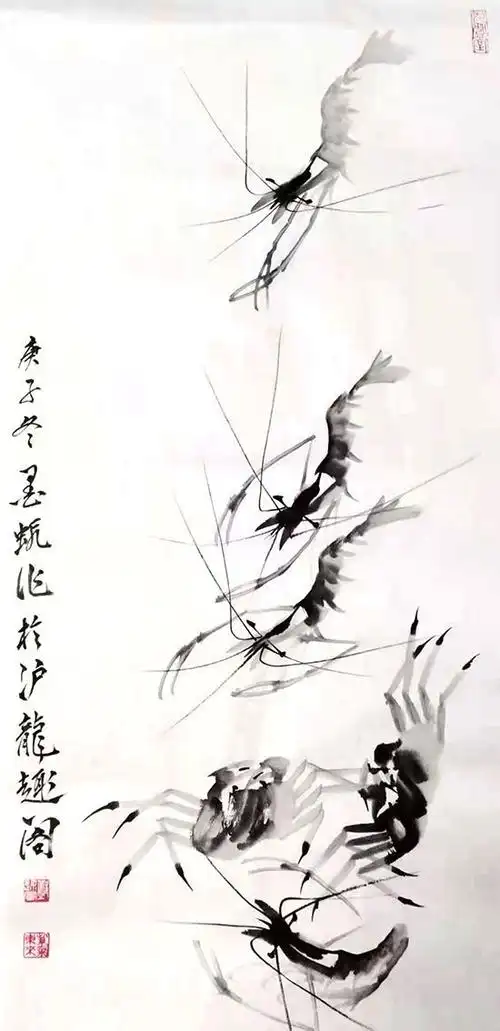 庚子冬墨甄作於沪龍趣阁